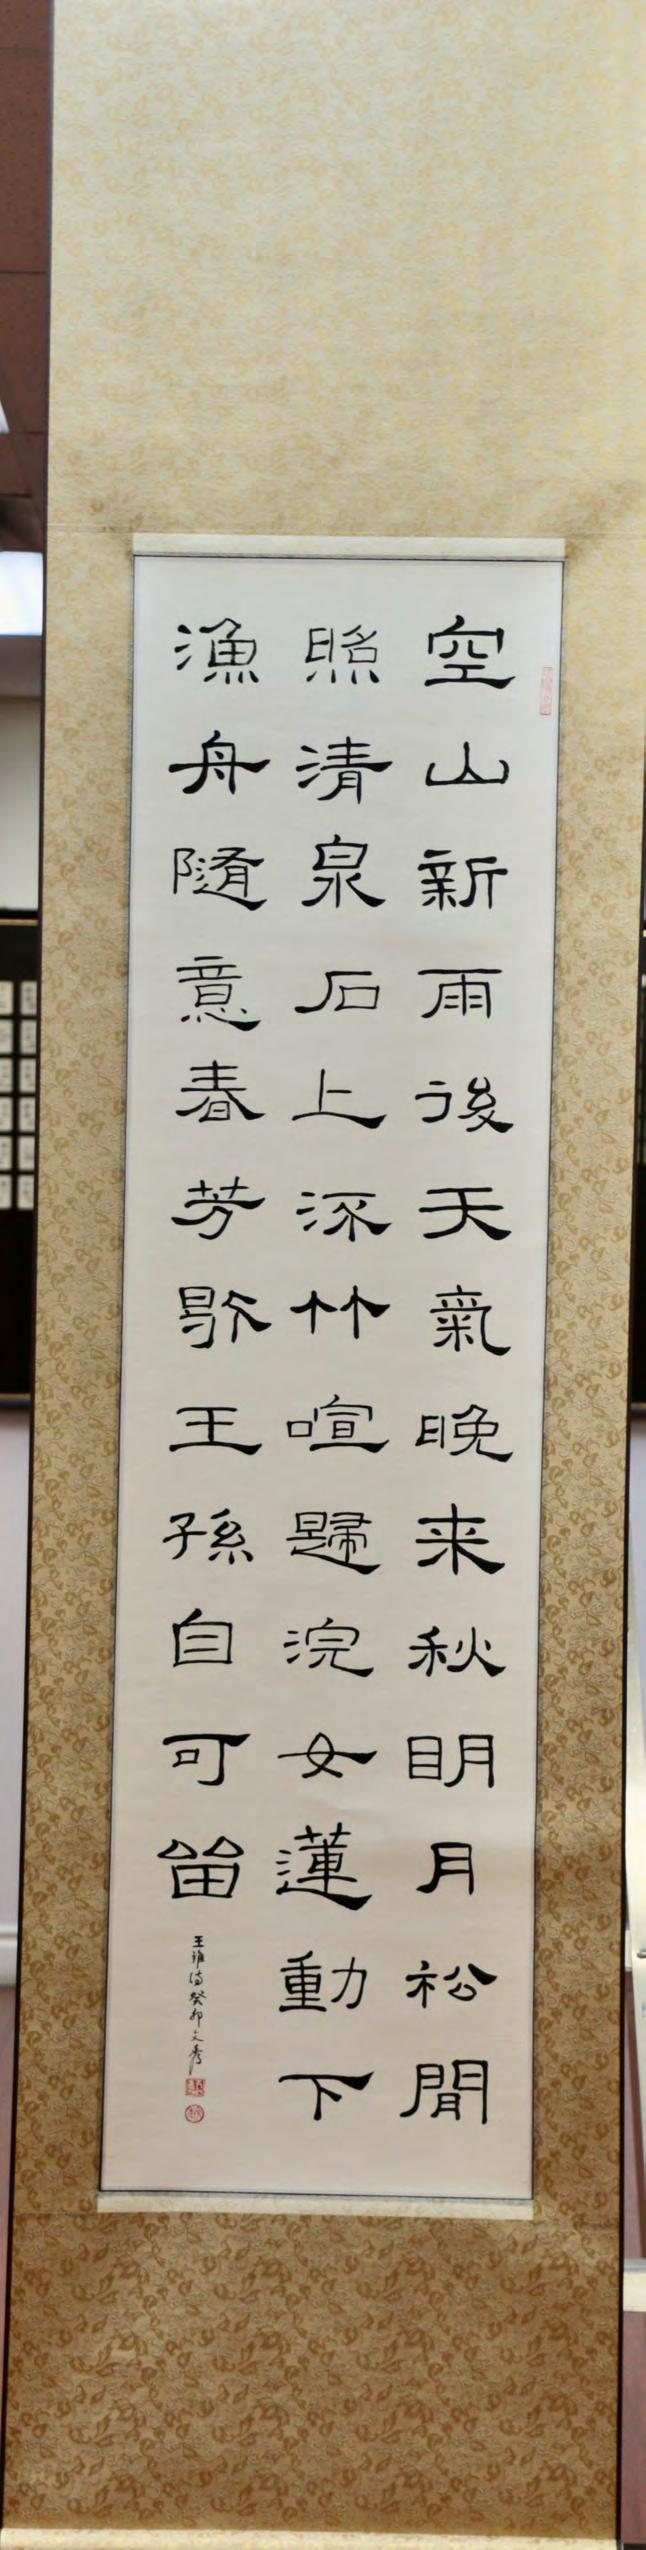 空山新雨後天氣晚来秋明月松間
照清泉石上流竹喧歸浣女蓮動下
漁舟隨意春芳歇王孫自可留
王維詩癸卯文秀